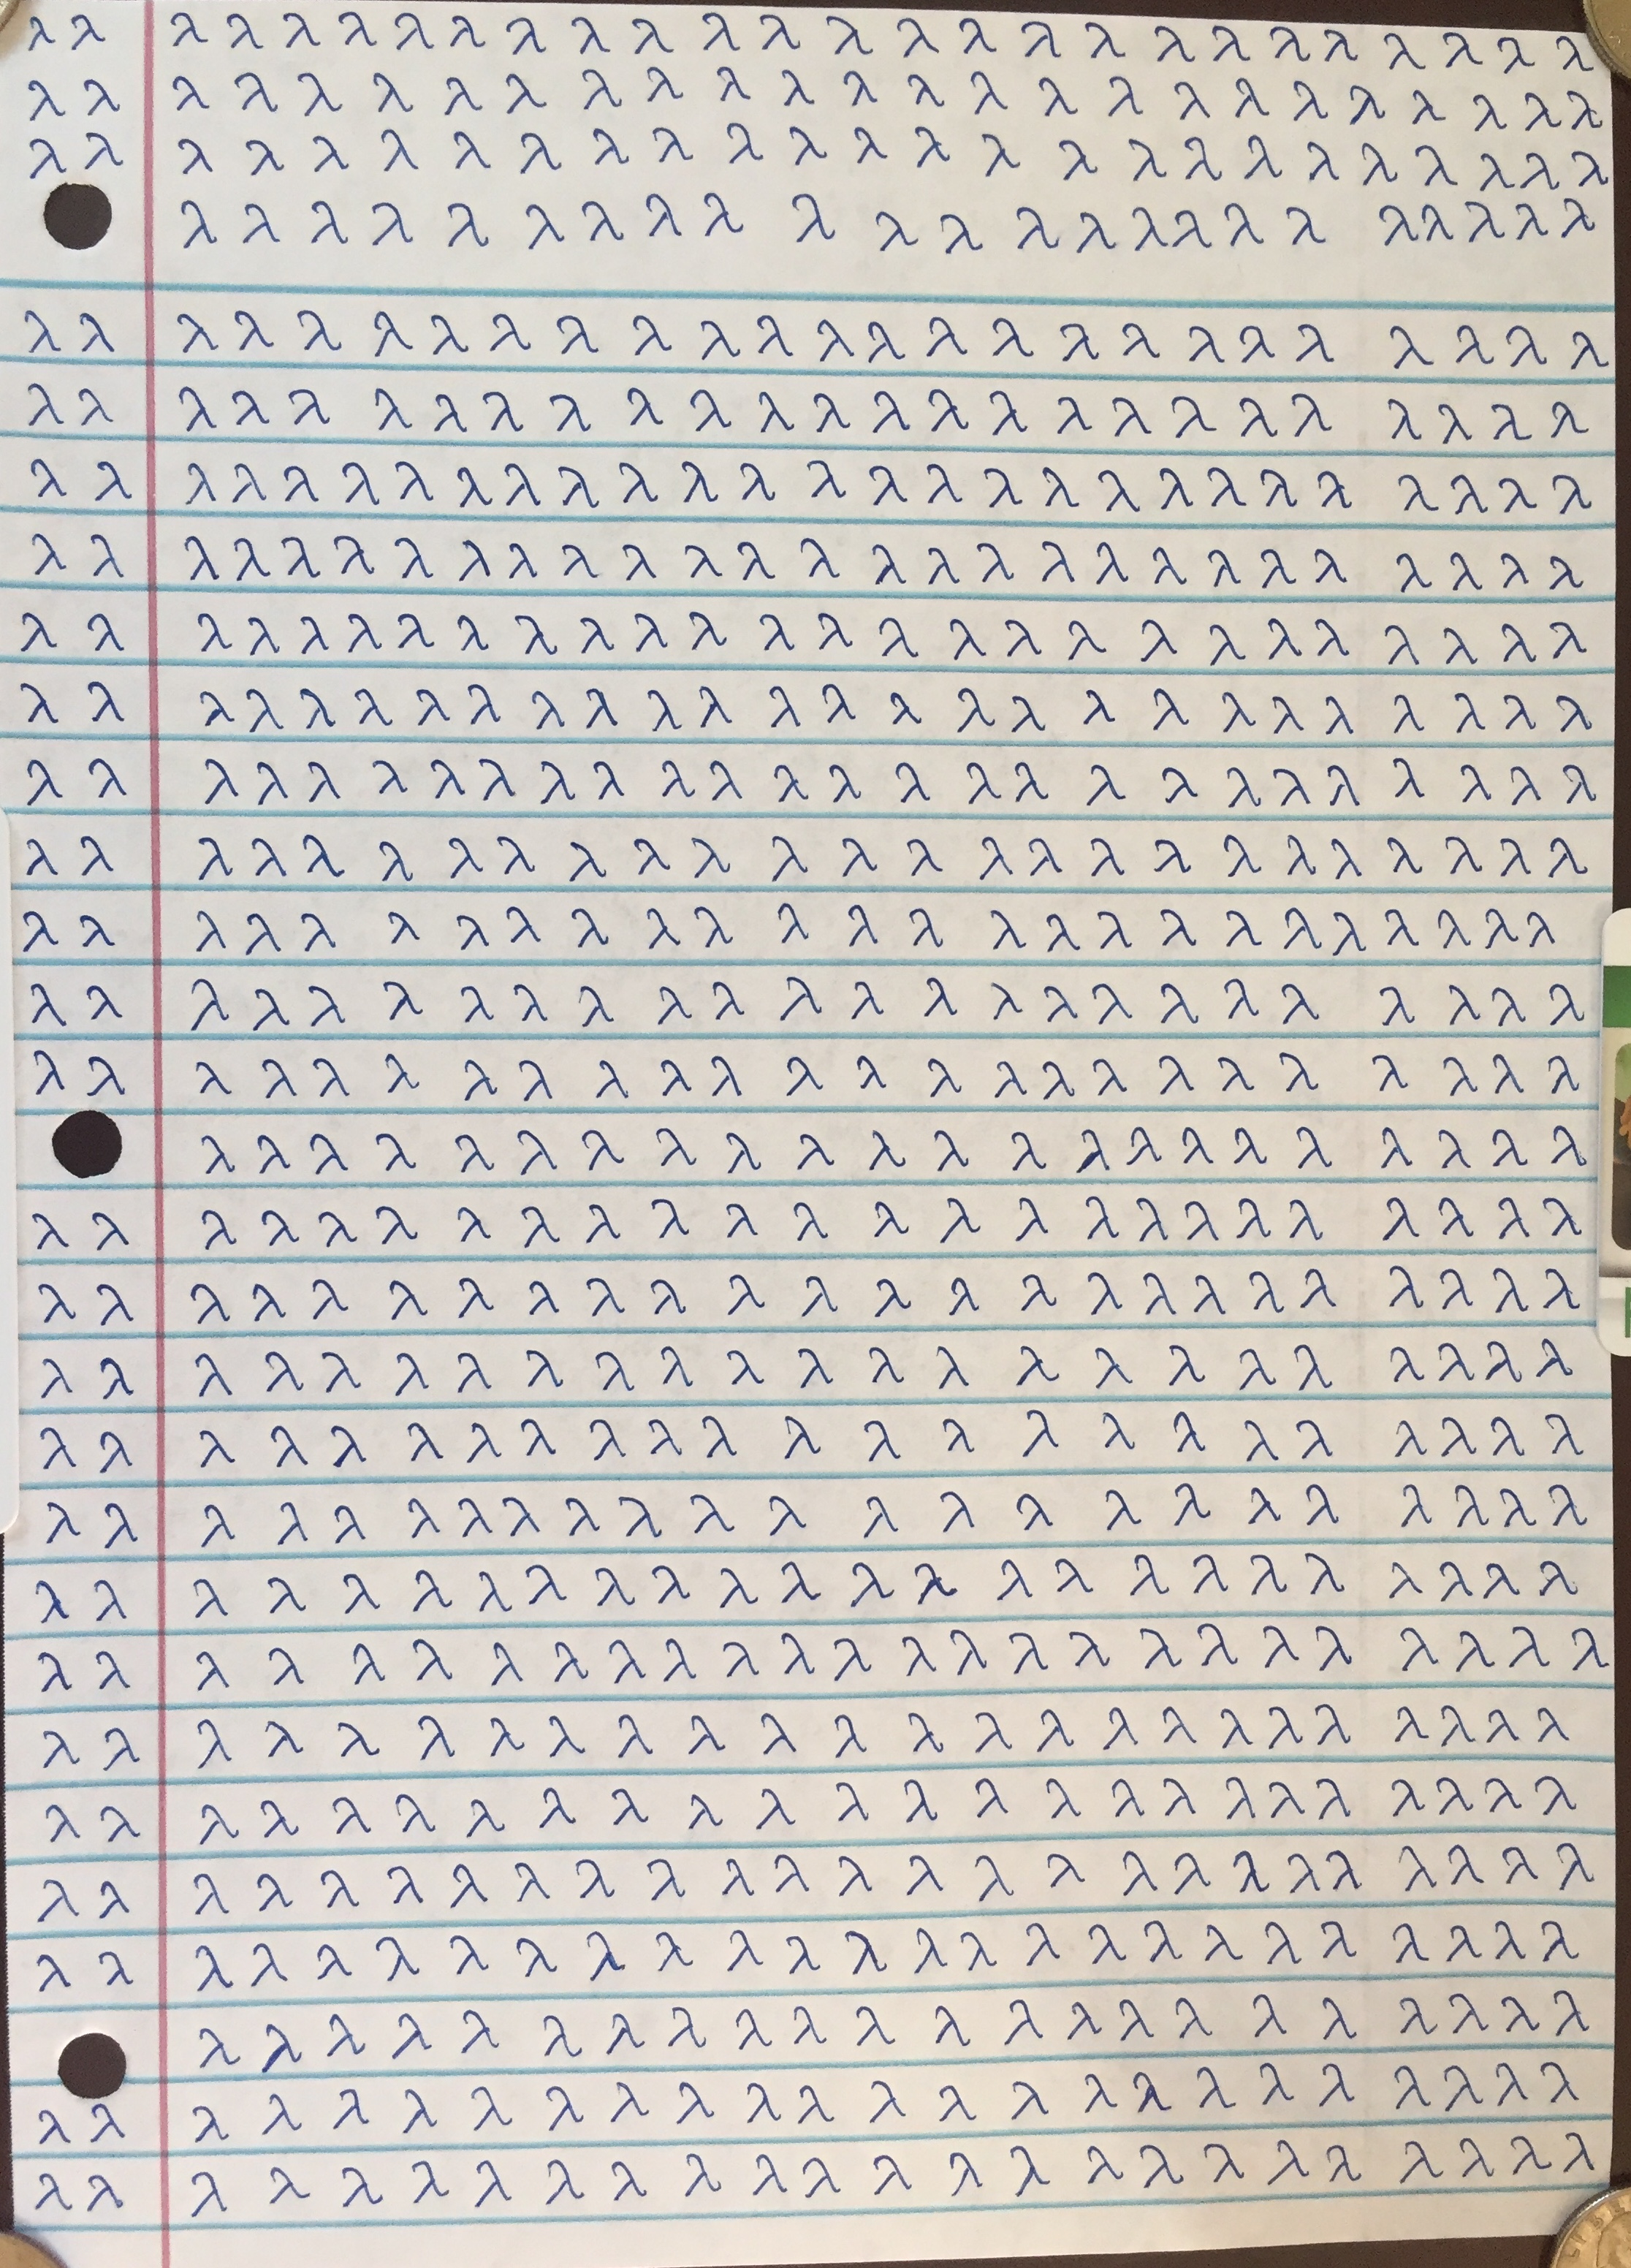 λ λ λ λ λ λ λ λ λ λ λ λ λ λ λ λ λ λ λ λ λ λ λ λ λ λ
λ λ λ λ λ λ λ λ λ λ λ λ λ λ λ λ λ λ λ λ λ λ λ λ λ
λ λ λ λ λ λ λ λ λ λ λ λ λ λ λ λ λ λ λ λ λ λ λ λ λ
λ λ λ λ λ λ λ λ λ λ λ λ λ λ λ λ λ λ λ λ λ λ λ
λ λ λ λ λ λ λ λ λ λ λ λ λ λ λ λ λ λ λ λ λ λ λ λ λ
λ λ λ λ λ λ λ λ λ λ λ λ λ λ λ λ λ λ λ λ λ λ λ λ λ
λ λ λ λ λ λ λ λ λ λ λ λ λ λ λ λ λ λ λ λ λ λ λ λ λ λ λ
λ λ λ λ λ λ λ λ λ λ λ λ λ λ λ λ λ λ λ λ λ λ λ λ λ λ λ
λ λ λ λ λ λ λ λ λ λ λ λ λ λ λ λ λ λ λ λ λ λ λ λ λ λ
λ λ λ λ λ λ λ λ λ λ λ λ λ λ λ λ λ λ λ λ λ λ λ λ λ λ
λ λ λ λ λ λ λ λ λ λ λ λ λ λ λ λ λ λ λ λ λ λ λ λ λ λ
λ λ λ λ λ λ λ λ λ λ λ λ λ λ λ λ λ λ λ λ λ λ λ λ λ
λ λ λ λ λ λ λ λ λ λ λ λ λ λ λ λ λ λ λ λ λ λ λ λ λ
λ λ λ λ λ λ λ λ λ λ λ λ λ λ λ λ λ λ λ λ λ λ λ λ
λ λ λ λ λ λ λ λ λ λ λ λ λ λ λ λ λ λ λ λ λ λ λ λ
λ λ λ λ λ λ λ λ λ λ λ λ λ λ λ λ λ λ λ λ λ λ
λ λ λ λ λ λ λ λ λ λ λ λ λ λ λ λ λ λ λ λ λ λ λ λ
λ λ λ λ λ λ λ λ λ λ λ λ λ λ λ λ λ λ λ λ λ λ λ λ
λ λ λ λ λ λ λ λ λ λ λ λ λ λ λ λ λ λ λ λ λ λ λ
λ λ λ λ λ λ λ λ λ λ λ λ λ λ λ λ λ λ λ λ λ λ λ
λ λ λ λ λ λ λ λ λ λ λ λ λ λ λ λ λ λ λ λ λ λ λ
λ λ λ λ λ λ λ λ λ λ λ λ λ λ λ λ λ λ λ λ λ λ λ λ
λ λ λ λ λ λ λ λ λ λ λ λ λ λ λ λ λ λ λ λ λ λ λ λ λ
λ λ λ λ λ λ λ λ λ λ λ λ λ λ λ λ λ λ λ λ λ λ λ λ
λ λ λ λ λ λ λ λ λ λ λ λ λ λ λ λ λ λ λ λ λ λ λ λ
λ λ λ λ λ λ λ λ λ λ λ λ λ λ λ λ λ λ λ λ λ λ λ λ λ
λ λ λ λ λ λ λ λ λ λ λ λ λ λ λ λ λ λ λ λ λ λ λ λ λ
λ λ λ λ λ λ λ λ λ λ λ λ λ λ λ λ λ λ λ λ λ λ
λ λ λ λ λ λ λ λ λ λ λ λ λ λ λ λ λ λ λ λ λ λ λ λ
λ λ λ λ λ λ λ λ λ λ λ λ λ λ λ λ λ λ λ λ λ λ λ λ